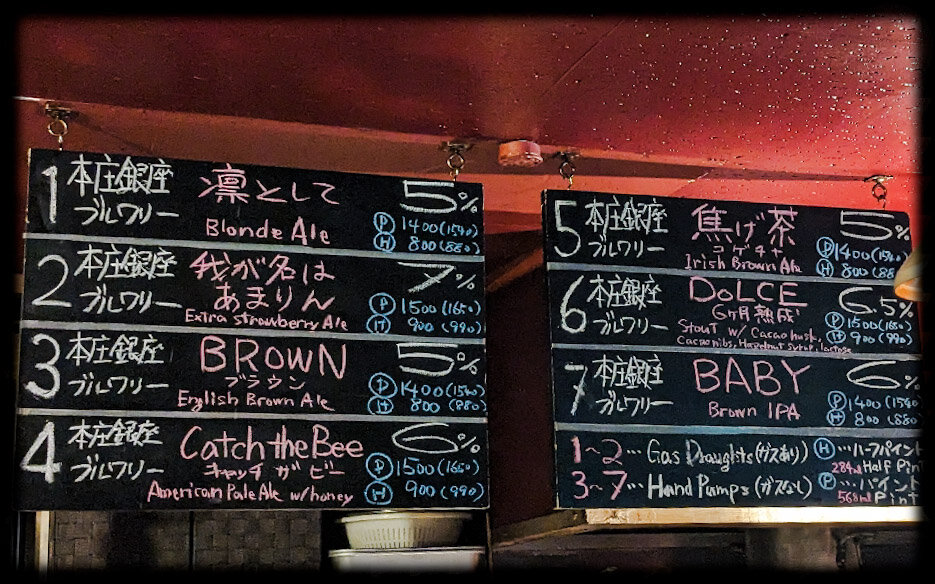 1 本庄銀座 凛として 5%
ブルワリー Blonde Ale Ⓟ 1400(1540)
Ⓗ 800(880)
2 本庄銀座 我が名は 7%
ブルワリー あまりん Ⓟ 1500(1650)
Extra strawberry Ale Ⓗ 900(990)
3 本庄銀座 BROWN 5%
ブルワリー ブラウン Ⓟ 1400(1540)
English Brown Ale Ⓗ 800(880)
4 本庄銀座 Catch the Bee 6%
ブルワリー キャッチ ザ ビー Ⓟ 1500(1650)
American Pale Ale w/honey Ⓗ 900(990)
5 本庄銀座 焦げ茶 5%
ブルワリー コゲチャ Ⓟ 1400(1540)
Irish Brown Ale Ⓗ 800(880
6 本庄銀座 DOLCE 6.5%
ブルワリー 6ヶ月熟成 Ⓟ 1500(1650)
Stout w/ Cacao husk, Ⓗ 900(990)
Cacao nibs, Hazelnut syrup, lactose
7 本庄銀座 BABY 6%
ブルワリー Brown IPA Ⓟ 1400(1540
Ⓗ 800(880
1~2… Gas Draughts (ガスあり) Ⓗ…ハーフパイント
284ml Half Pint
3~7… Hand Pumps (ガスなし) Ⓟ…パイント
568ml Pint